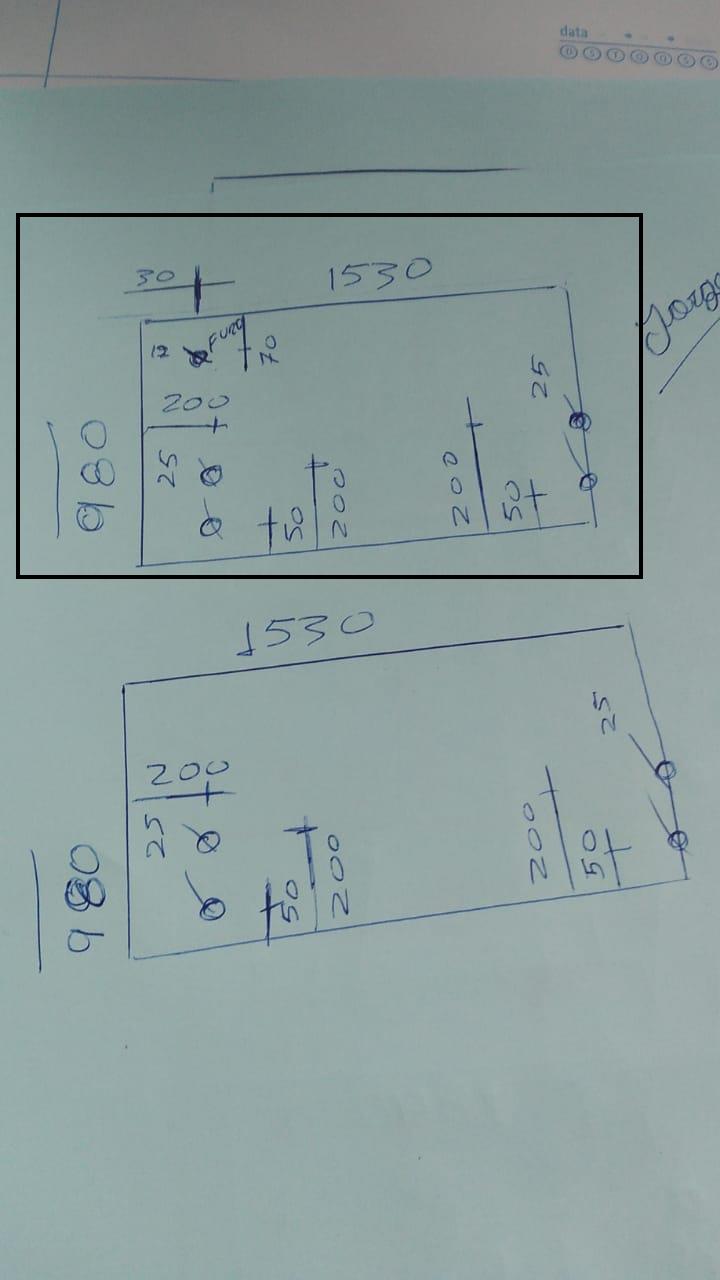 data
D S T Q Q S S
30
1530
12 FURO
70
200
25
980
25
50
200
200
50
Jorge
1530
200
25
980
25
50
200
200
50